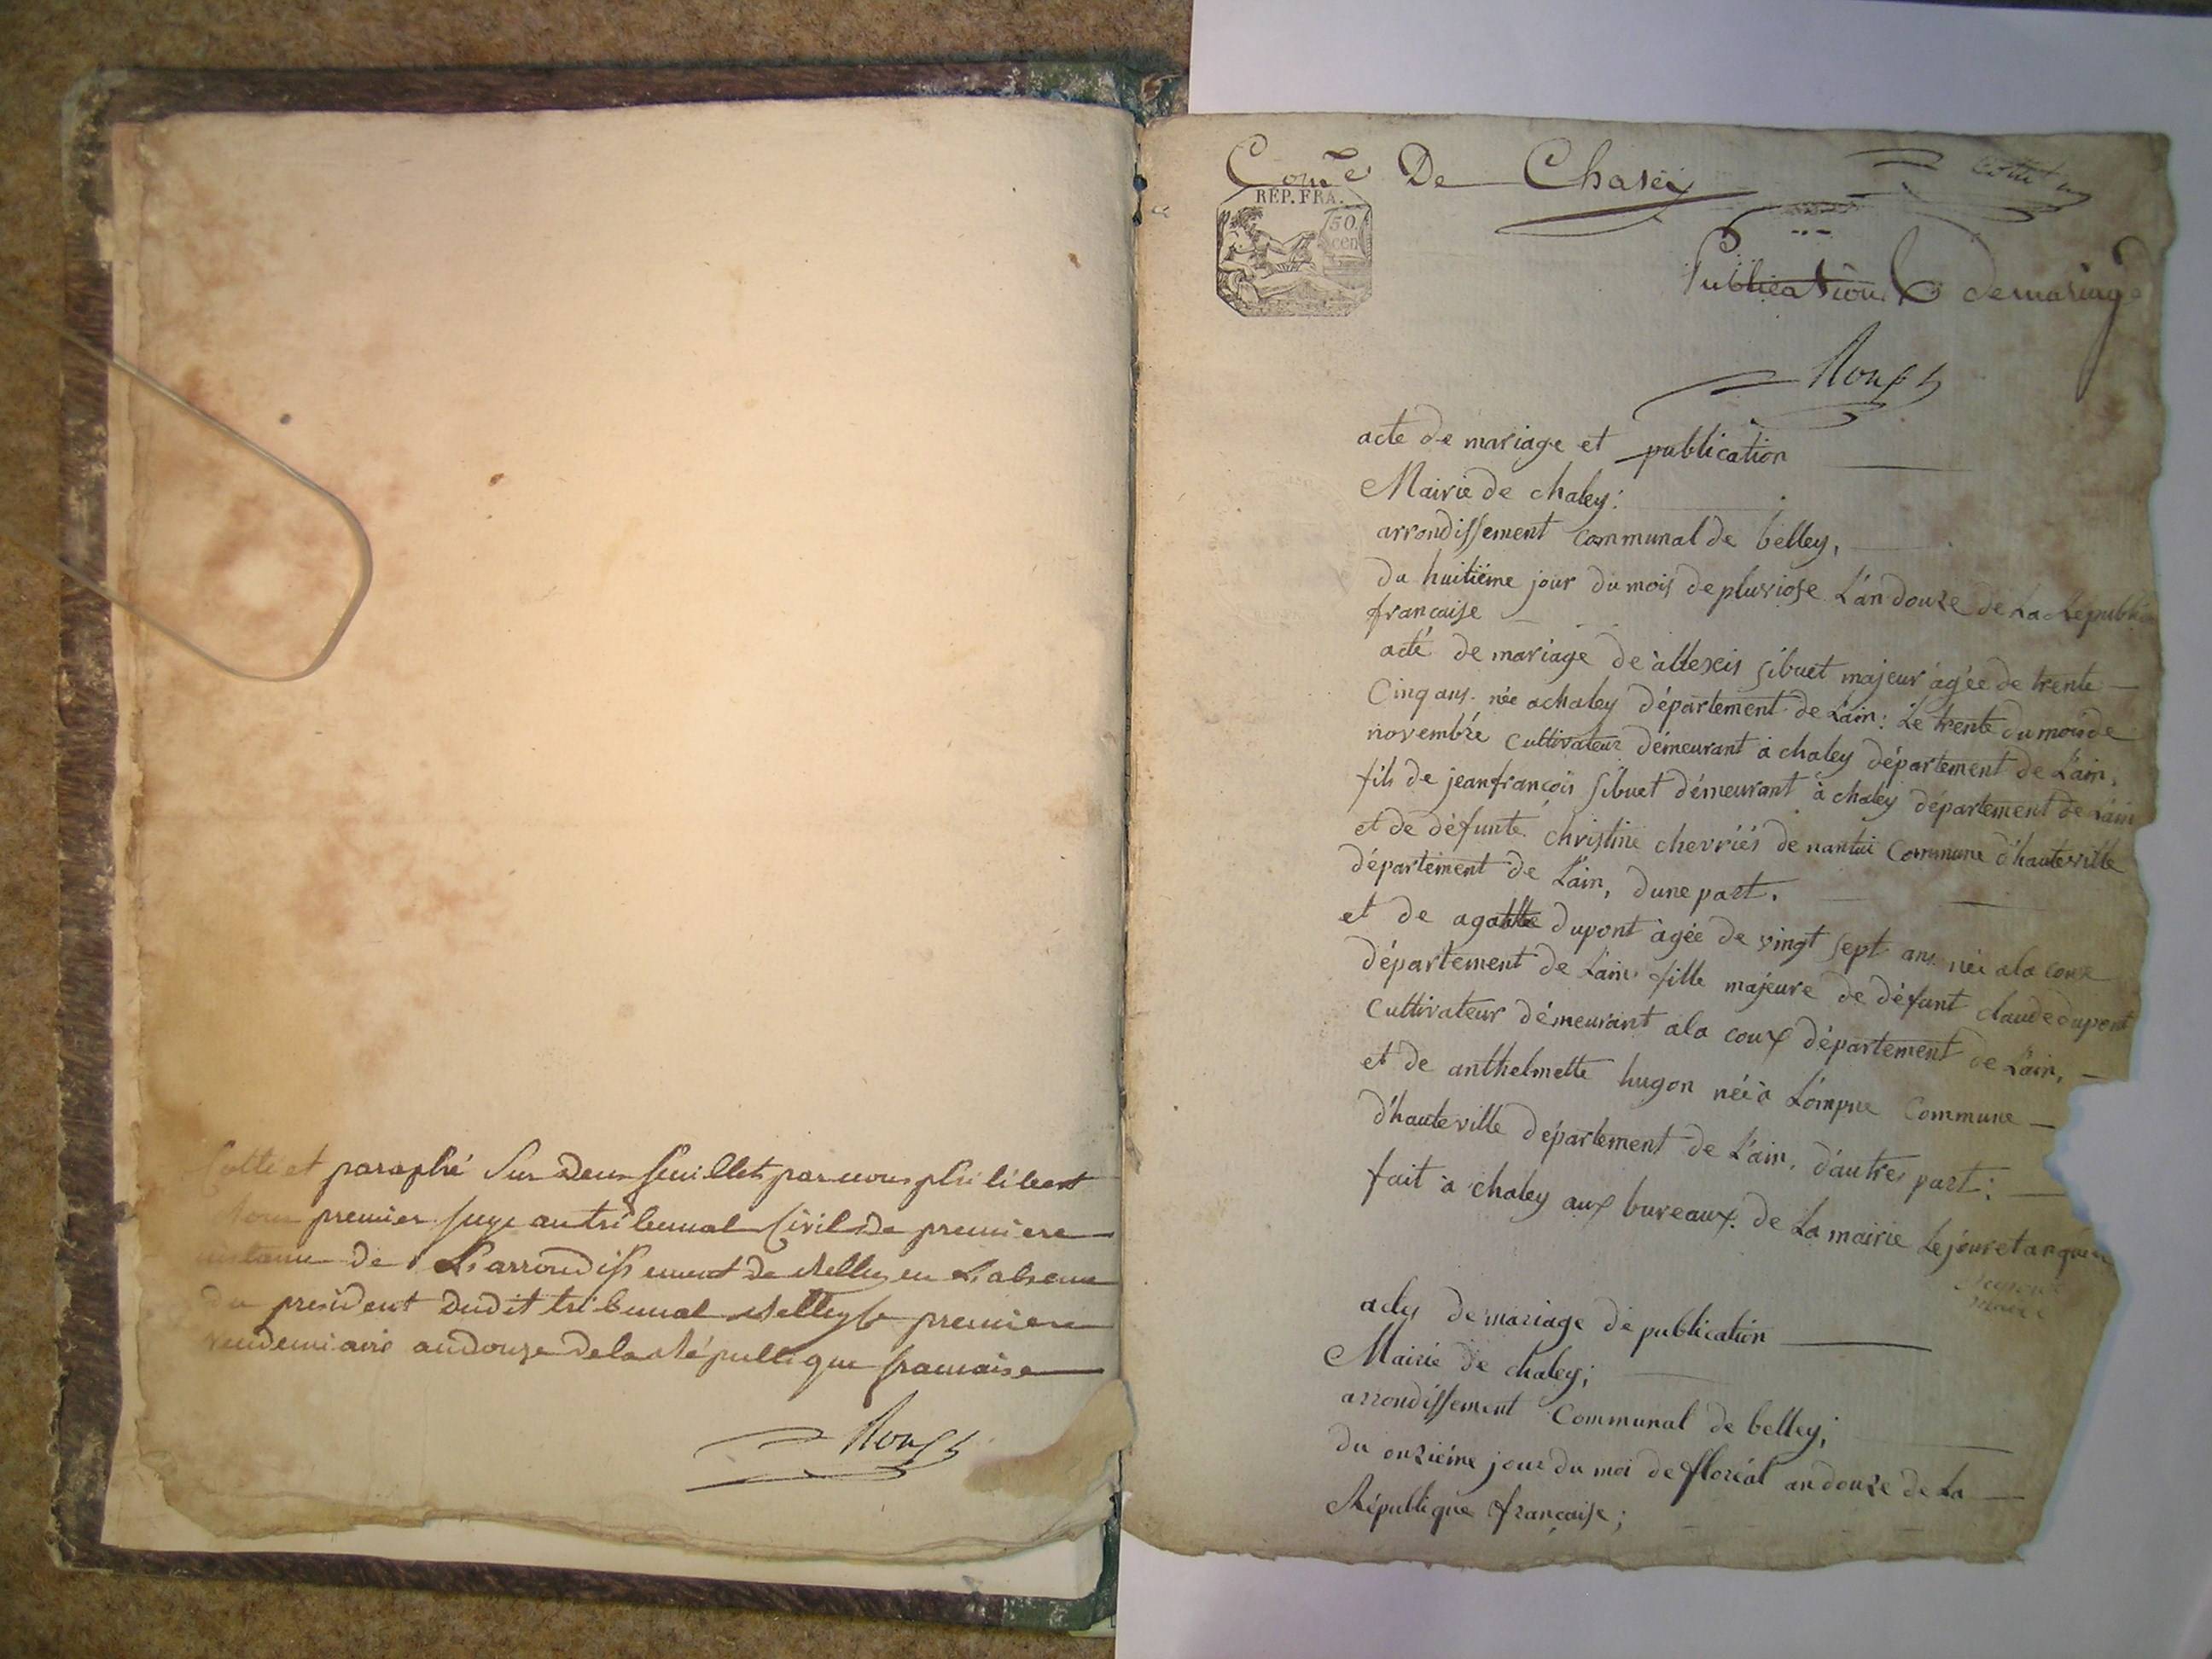 Cotté et paraphé Sur deux feuillets par nous philibert
premier juge au tribunal Civil de premiere
instance de L'arrondissement de Belley en L'absence
du president dudit tribunal Belley le premiere
vendemiaire an douze de la République francaise
Com.e De Chaley
REP. FRA.
50
cen
Publication de mariage
acte de mariage et publication
Mairie de chaley:
arrondissement Communal de belley,
du huitiéme jour du mois de pluviose L'an douze de La Républi
francaise
acté de mariage de allexis Sibuet majeur agée de trente
Cinq ans née a chaley département de L'ain: Le trente du mois de
novembré Cultivateur démeurant à chaley département de L'ain,
fils de jean françois Sibuet démeurant à chaley département de L'ain
et de défunte christine chevriés de nantui Commune d'hauteville
département de L'ain, dune part.
et de agatte dupont agée de vingt sept ans née a la coux
département de L'ain fille majeure de défunt claude dupont
Cultivateur démeurant a la coux département de L'ain,
et de anthelmette hugon née à Lompne Commune
d'hauteville département de L'ain, d'autre part:
fait à chaley aux bureaux de La mairie Le jour et an que
maire
actes de mariage dé publication
Mairie de chaley;
arrondissement Communal de belley;
du onziéme jour du moi de floréal an douze de La
République française;